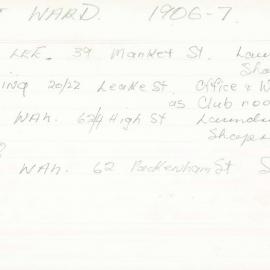 WARD. 1906-7.
LEE. 39 Market St. Laun
Sho
ING 20/22 Leake St. Office & W
as Club roo
WAH. 62/4 High St Laund
Shops
WAH. 62 Packenham St S